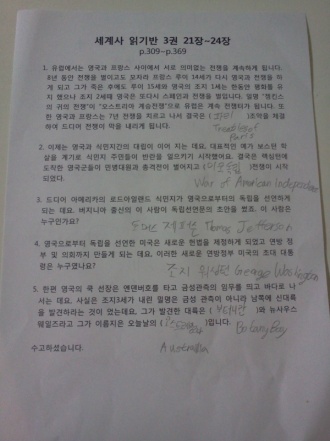 세계사 읽기반 3권 21장~24장
p.309~p.369
1. 유럽에서는 영국과 프랑스 사이에서 서로 의미없는 전쟁을 계속하게 됩니다.
8년 동안 전쟁을 벌이고도 모자라 프랑스 루이 14세가 다시 영국과 전쟁을 하
게 되고 그가 죽은 후에도 루이 15세와 영국의 조지 1세는 한동안 평화를 유
지 했으나 조지 2세때 영국은 또다시 스페인과 전쟁을 벌입니다. 일명 "젠킨스
의 귀의 전쟁"이 "오스트리아 계승전쟁"으로 유럽은 계속 전쟁터가 됩니다. 또
한 영국과 프랑스는 7년 전쟁을 치르고 나서 결국은 (파리 )조약을 체결
하여 드디어 전쟁이 막을 내리게 됩니다.
Treaty of
Paris
2. 이제는 영국과 식민지간의 대립이 이어 지는 데요. 대표적인 예가 보스턴 학
살을 계기로 식민지 주민들이 반란을 일으키기 시작했어요. 결국은 렉싱턴에
도착한 영국군들이 민병대원과 총격전이 벌어지며 (미국독립 )전쟁이 시작
되었다.
War of American Independence
3. 드디어 아메리카의 로드아일랜드 식민지가 영국으로부터의 독립을 선언하게
되는 데요. 버지니아 출신의 이 사람이 독립선언문의 초안을 썼죠. 이 사람은
누구인가요?
토머스 제퍼슨 Thomas Jefferson
4. 영국으로부터 독립을 선언한 미국은 새로운 헌법을 제정하게 되었고 연방 정
부 및 의회까지 만들게 되는 데요. 이러한 새로운 연방정부 미국의 초대 대통
령은 누구였나요?
조지 워싱턴 George Washington
5. 한편 영국의 쿡 선장은 엔덴버호를 타고 금성관측의 임무를 띄고 바다로 나
서는 데요. 사실은 조지3세가 내린 명령은 금성 관측이 아니라 남쪽에 신대륙
을 발견하라는 것이 었는데요. 그가 발견한 대륙은 ( ) 와 뉴사우스
웨일즈라고 그가 이름지은 오늘날의 ( )입니다.
Botany Bay
수고하셨습니다.
Australia